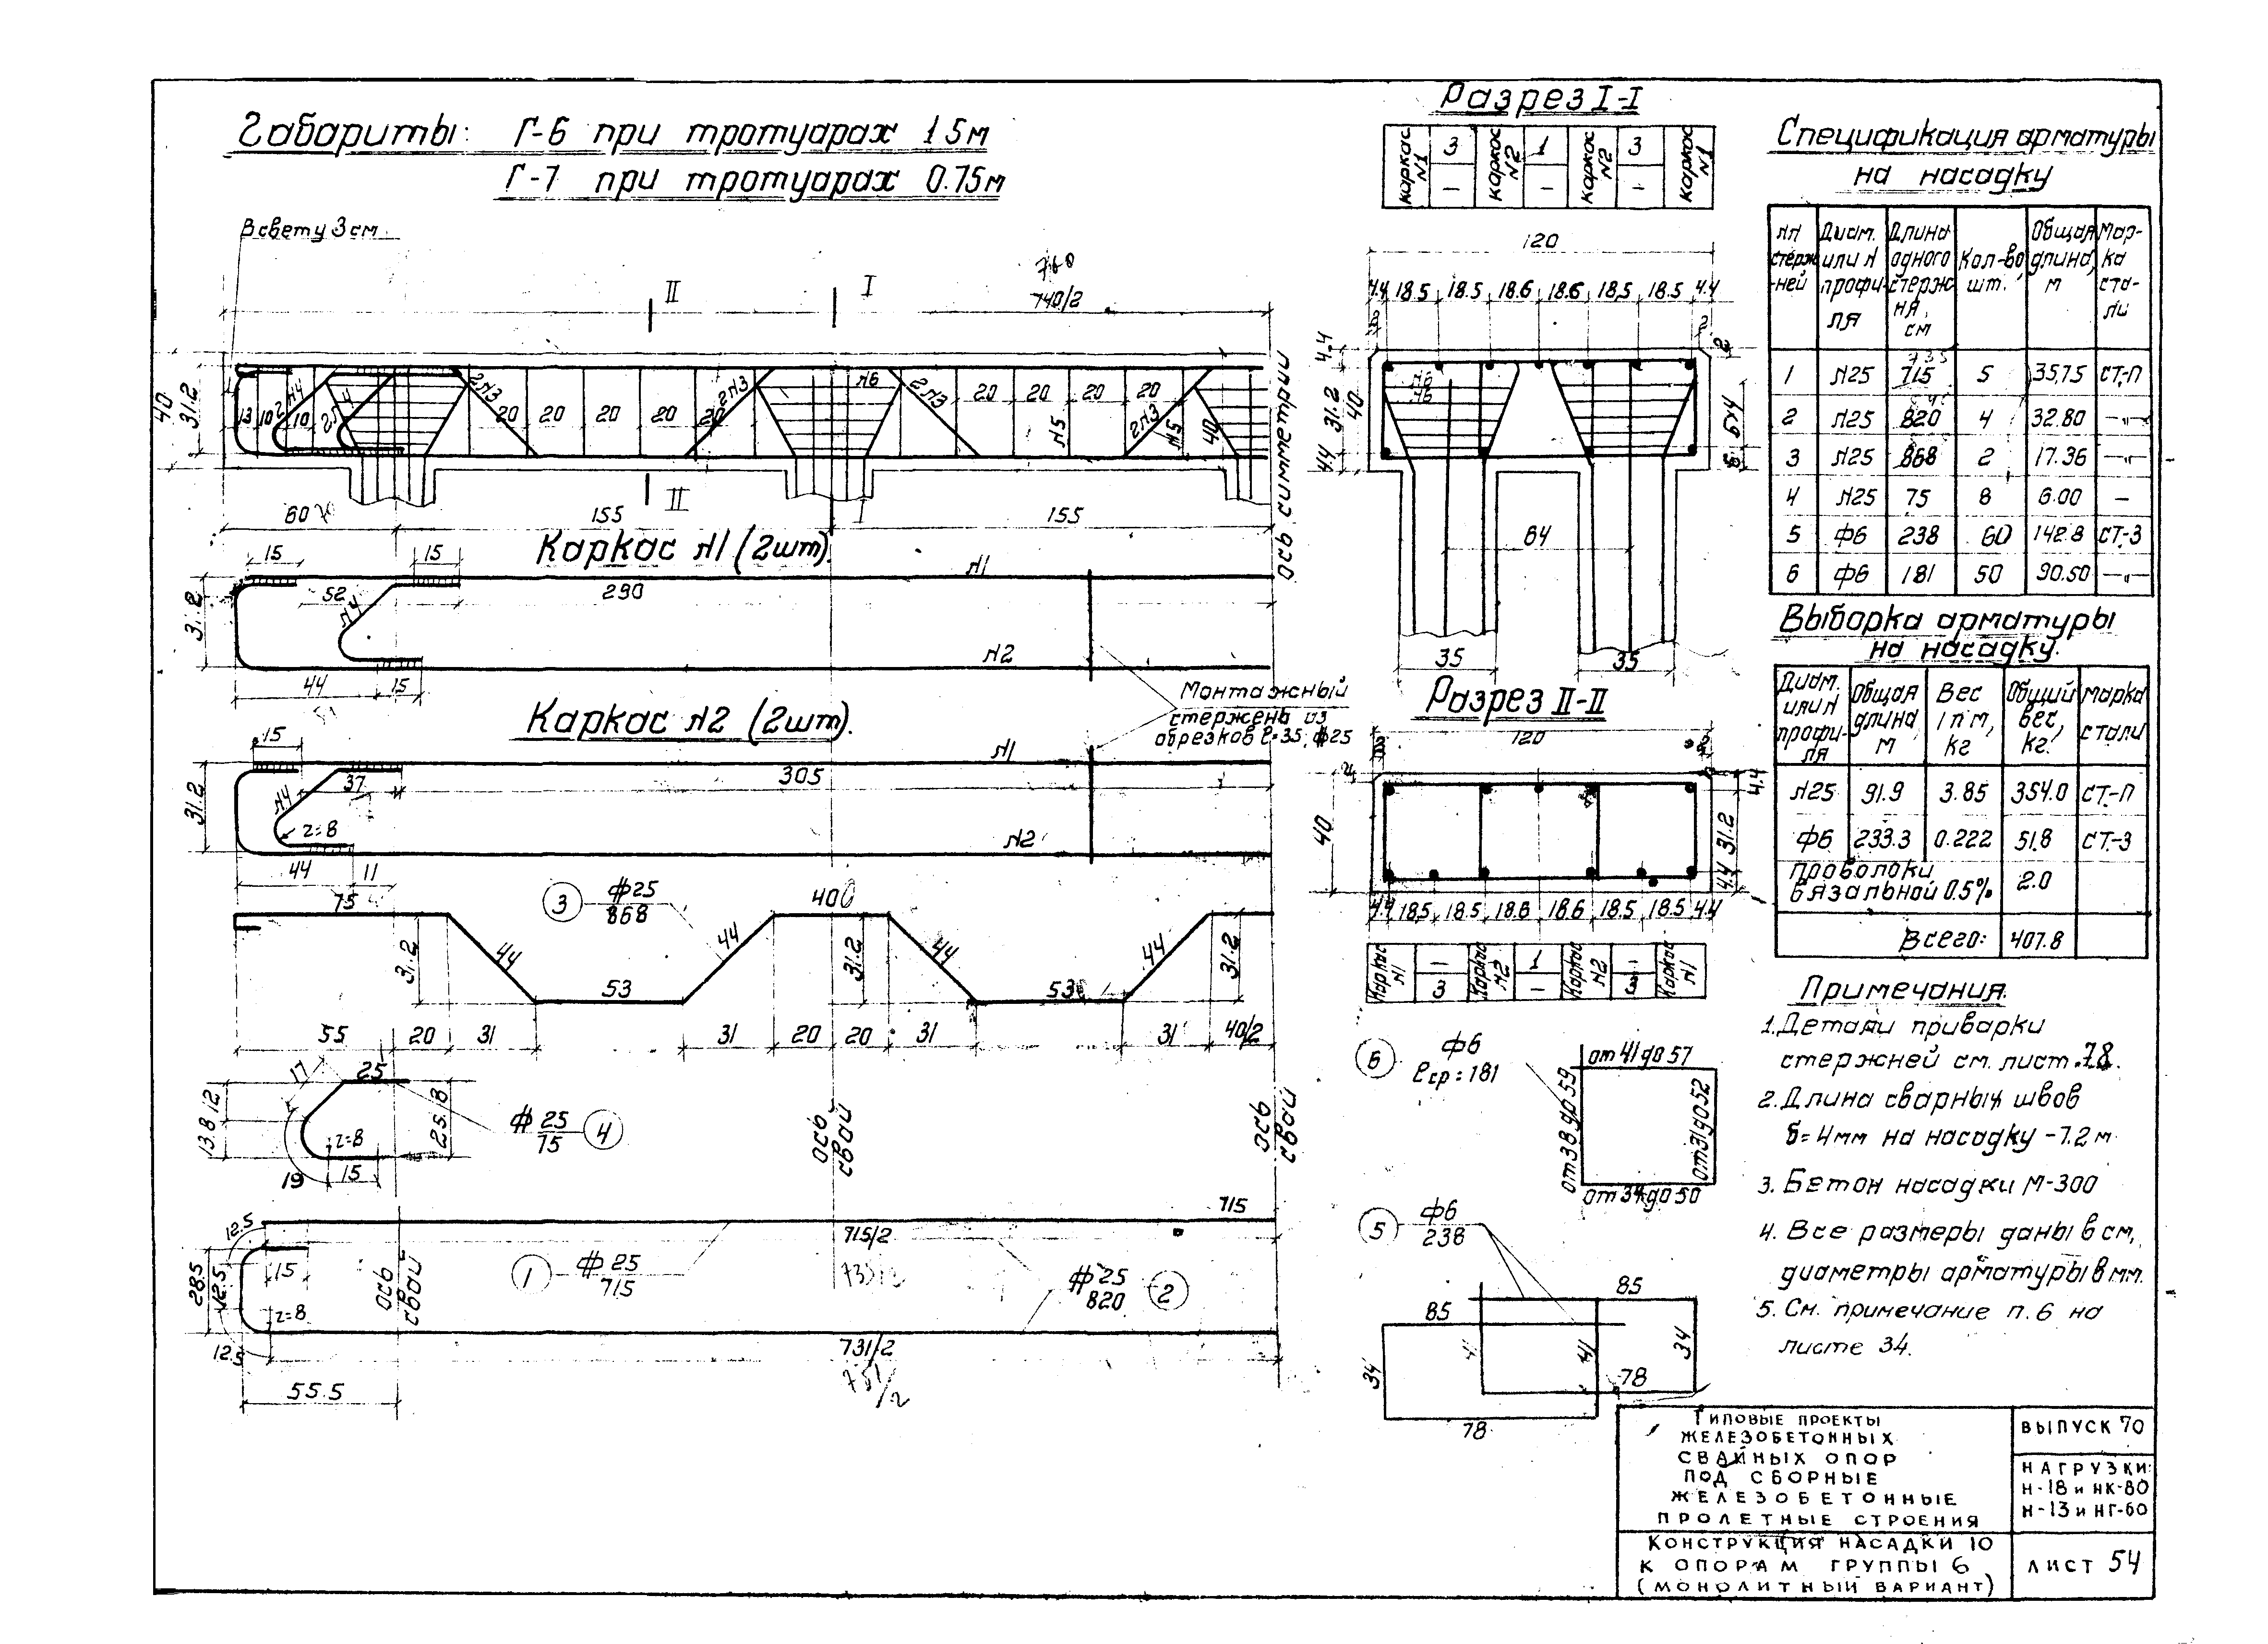 Габариты: Г-6 при тротуарах 1.5м
Г-7 при тротуарах 0.75м
В свету 3 см.
760
740/2
II
I
40
31.2
13 10 10
20 20 20 20 20
20 20 20 20
2л3 2л3 2л3 2л3
№4
№6
№5 №5
40
ось симметрии
II
I
60 70
155
155
Каркас №1 (2шт).
15
15
№1
52
290
31.2
№4
№2
44
15
Монтажный
стержень из
обрезков ℓ=35, ф25
Каркас №2 (2шт).
15
№1
37
305
31.2
№4
r=8
№2
44
11
75
3
ф25
868
400
31.2
44
44
31.2
44
44
31.2
53
53
55
20
31
31
20
20
31
31
40/2
17
25
13.8 12
r=8
25.8
15
19
ф25
75
4
ось свай
ось свай
ось свай
715
12.5
715/2
28.5
12.5
15
r=8
12.5
1
ф25
715
735/2
ф25
820
2
731/2
751/2
55.5
Разрез I-I
каркас №1
3
–
каркас №2
1
–
каркас №2
3
–
каркас №1
120
4.4 18.5 18.5 18.6 18.6 18.5 18.5 4.4
2
2
2
4.4
31.2
40
4.4
№6
№6
64
35
35
Разрез II-II
120
40
4.4
31.2
4.4
4.4 18.5 18.5 18.6 18.6 18.5 18.5 4.4
Каркас №1
–
3
Каркас №2
1
–
Каркас №2
3
Каркас №1
6
ф6
ℓср=181
от 41 до 57
от 38 до 59
от 31 до 52
от 34 до 50
5
ф6
238
85
85
34
41
41
34
78
78
Спецификация арматуры
на насадку
№№ стержней
Диам. или № профиля
Длина одного стержня, см
Кол-во шт.
Общая длина, м
Марка стали
1 №25 715 5 35.75 СТ.-П
735
2 №25 820 4 32.80 —"—
3 №25 868 2 17.36 —"—
4 №25 75 8 6.00 —
5 ф6 238 60 142.8 СТ-3
6 ф6 181 50 90.50 —"—
Выборка арматуры
на насадку.
Диам. или № профиля
Общая длина, м
Вес 1 п м, кг
Общий вес, кг.
марка стали
№25 91.9 3.85 354.0 СТ.-П
ф6 233.3 0.222 51.8 СТ.-3
Проволоки
вязальной 0.5% 2.0
Всего: 407.8
Примечания.
1. Детали приварки
стержней см. лист. 78.
2. Длина сварных швов
δ=4мм на насадку -7.2 м
3. Бетон насадки М-300
4. Все размеры даны в см,
диаметры арматуры в мм.
5. См. примечание п. 6 на
листе 34.
Типовые проекты
железобетонных
свайных опор
под сборные
железобетонные
пролетные строения
Выпуск 70
Нагрузки:
Н-18 и НК-80
Н-13 и НГ-60
Конструкция насадки 10
к опорам группы 6
(монолитный вариант)
Лист 54